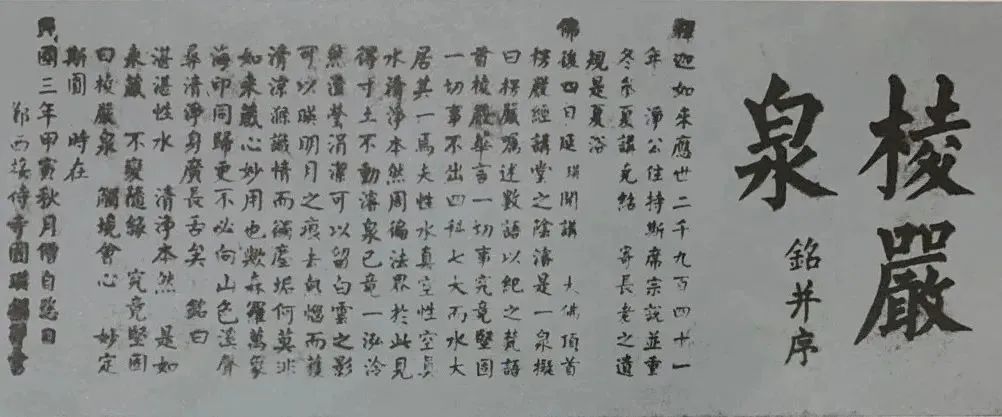 棱嚴
泉
銘并序
釋迦如來應世二千九百四十一
年 淨公住持斯席宗說並重
冬參夏講克結 寄長老之遺
規是夏浴
佛後四日延瑛開講 大佛頂首
楞嚴經講堂之陰濬是一泉擬
曰楞嚴囑述數語以紀之梵語
首棱嚴華言一切事究竟堅固
一切事不出四科七大而水大
居其一焉夫性水真空性空真
水清淨本然周徧法界於此見
得寸土不動濬泉已竟一泓泠
然澄瑩涓潔可以留白雲之影
可以暎明月之痕去惱而
清滌識情而塵垢何莫非
如來藏心妙用也歟森羅萬象
海印同歸更不必向山色溪聲
尋清淨身廣長舌矣 銘曰
湛湛性水 清淨本然 是如
來藏 不變隨緣 究竟堅固
曰棱嚴泉 觸境會心 妙定
斯圓 時在
民國三年甲寅秋月僧自恣日
鄞西接待寺圓瑛